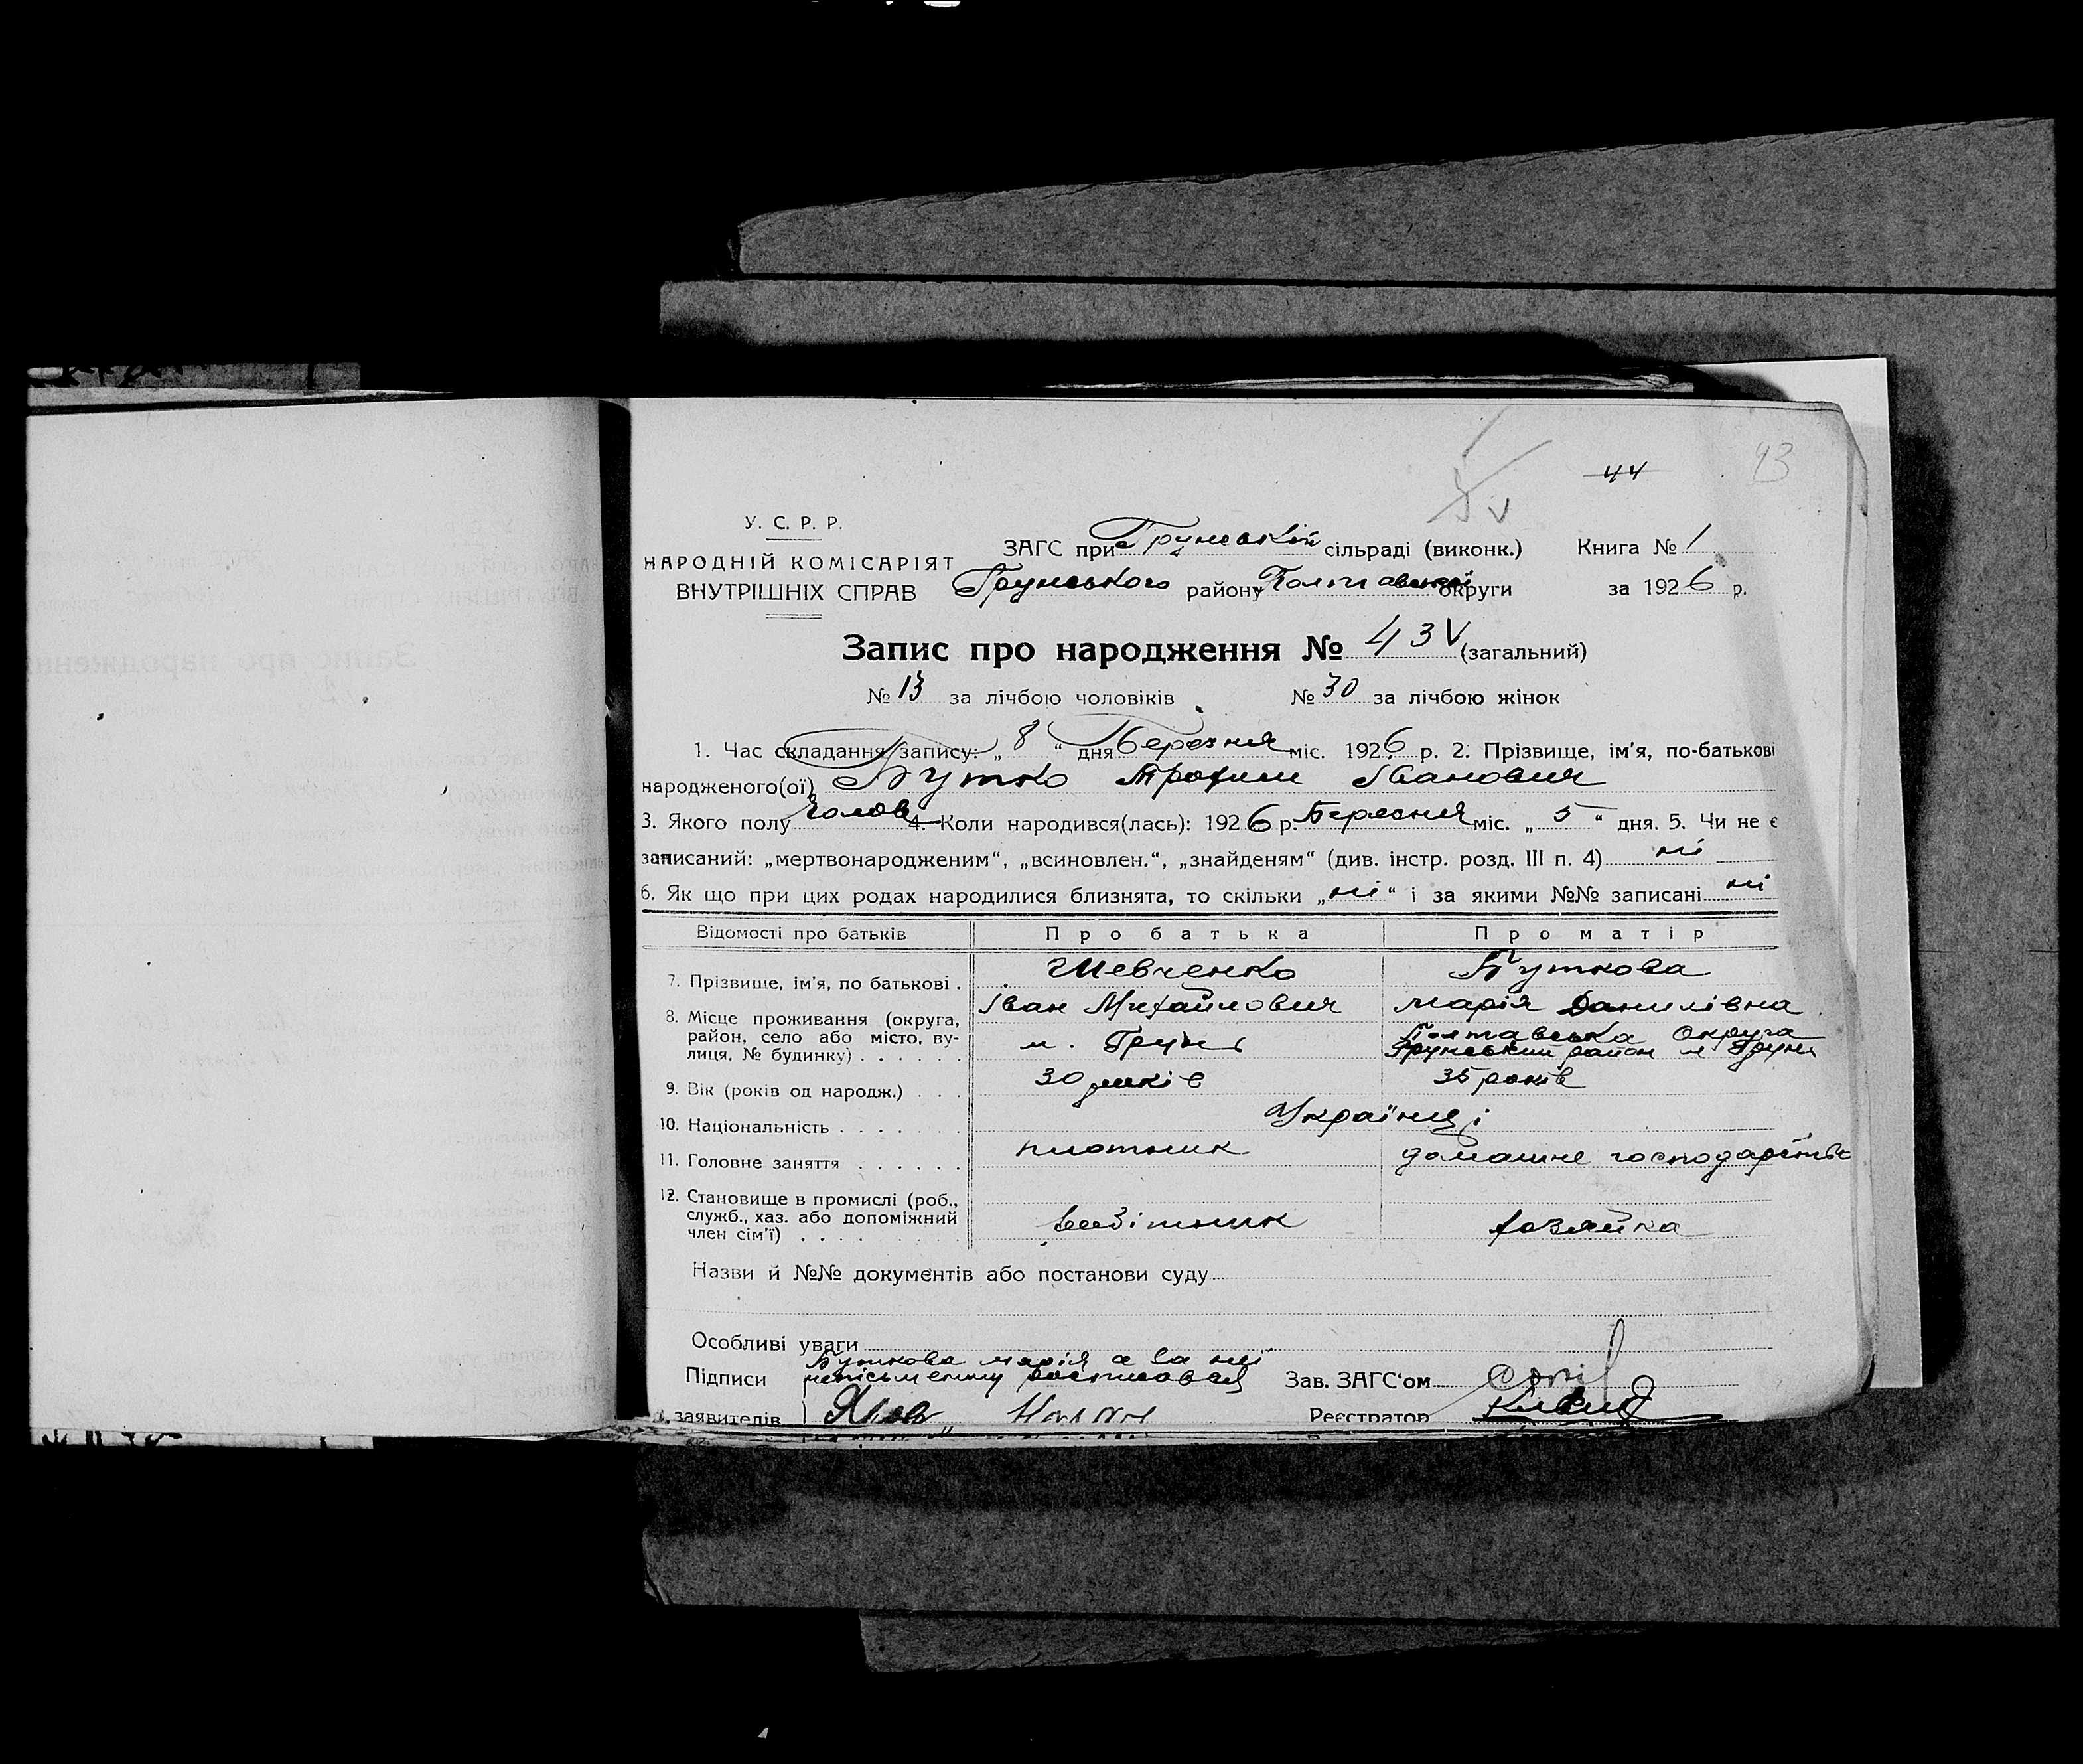 44 43
У. С. Р. Р.
НАРОДНІЙ КОМІСАРІЯТ
ВНУТРІШНІХ СПРАВ
ЗАГС при Грунській сільраді (виконк.) Книга № 1
Грунського району Полтавської округи за 1926 р.
Запис про народження № 43 V (загальний)
№ 13 за лічбою чоловіків № 30 за лічбою жінок
1. Час складання запису: „ 8 “ дня Березня міс. 1926 р. 2. Прізвище, ім'я, по-батькові
народженого(ої) Бутко Трофим Іванович
3. Якого полу Чолов 4. Коли народився(лась): 1926 р. Березня міс. „ 5 “ дня. 5. Чи не є
записаний: „мертвонародженим“, „всиновлен.“, „знайденям“ (див. інстр. розд. III п. 4) ні
6. Як що при цих родах народилися близнята, то скільки „ ні “ і за якими №№ записані ні
Відомості про батьків Про батька Про матір
7. Прізвище, ім'я, по батькові . Шевченко Іван Михайлович Буткова Марія Данилівна
8. Місце проживання (округа, район, село або місто, вулиця, № будинку) . . . . . . м. Грунь Полтавська Округа Грунський район м Грунь
9. Вік (років од народж.) . . . 30 років 35 років
10. Національність . . . . . . . Українці
11. Головне заняття . . . . . . плотник домашне господарство
12. Становище в промислі (роб., служб., хаз. або допоміжний член сім'ї) . . . . . . . . . хозяйка
Назви й №№ документів або постанови суду
Особливі уваги
Підписи Буткова марія а за неї
неписьменну росписався Зав. ЗАГС'ом
заявителів Реєстратор